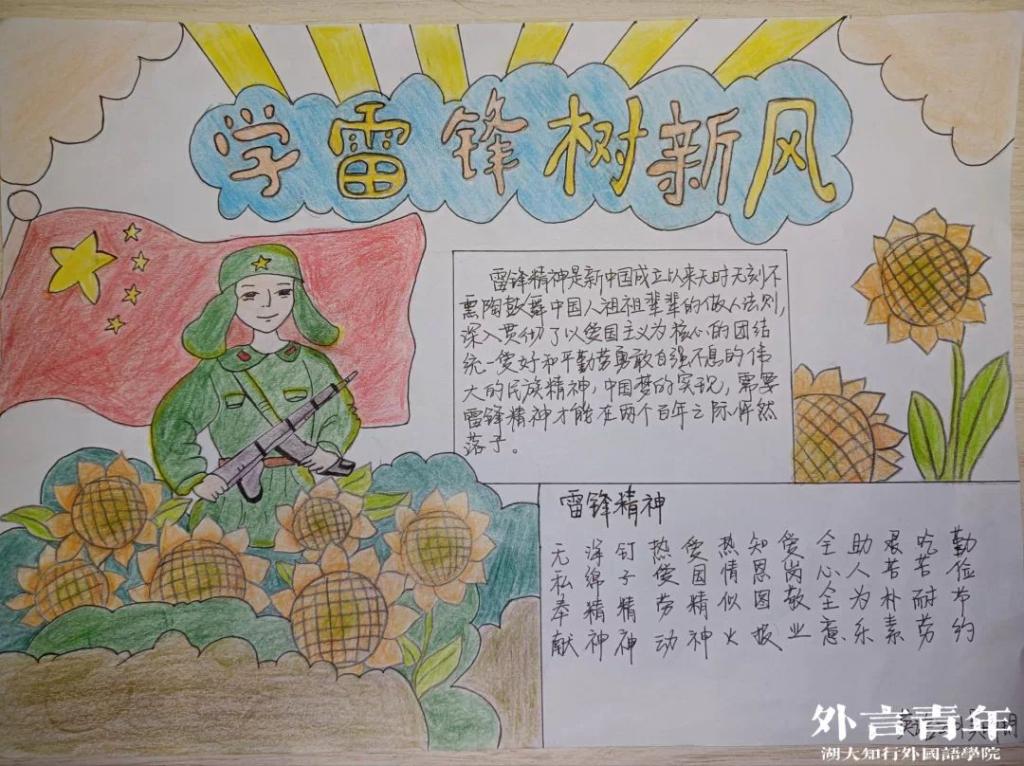 学雷锋树新风
雷锋精神是新中国成立以来无时无刻不
熏陶鼓舞中国人祖祖辈辈的做人法则,
深入贯彻了以爱国主义为核心的团结
统一爱好和平勤劳勇敢自强不息的伟
大的民族精神,中国梦的实现,需要
雷锋精神才能在两个百年之际怦然
落子。
雷锋精神
无私奉献
洋绵精神
钉子精神
热爱劳动
爱国精神
热情似火
知恩图报
爱岗敬业
全心全意
助人为乐
艰苦朴素
吃苦耐劳
勤俭节约
外言青年
湖大知行外國語學院